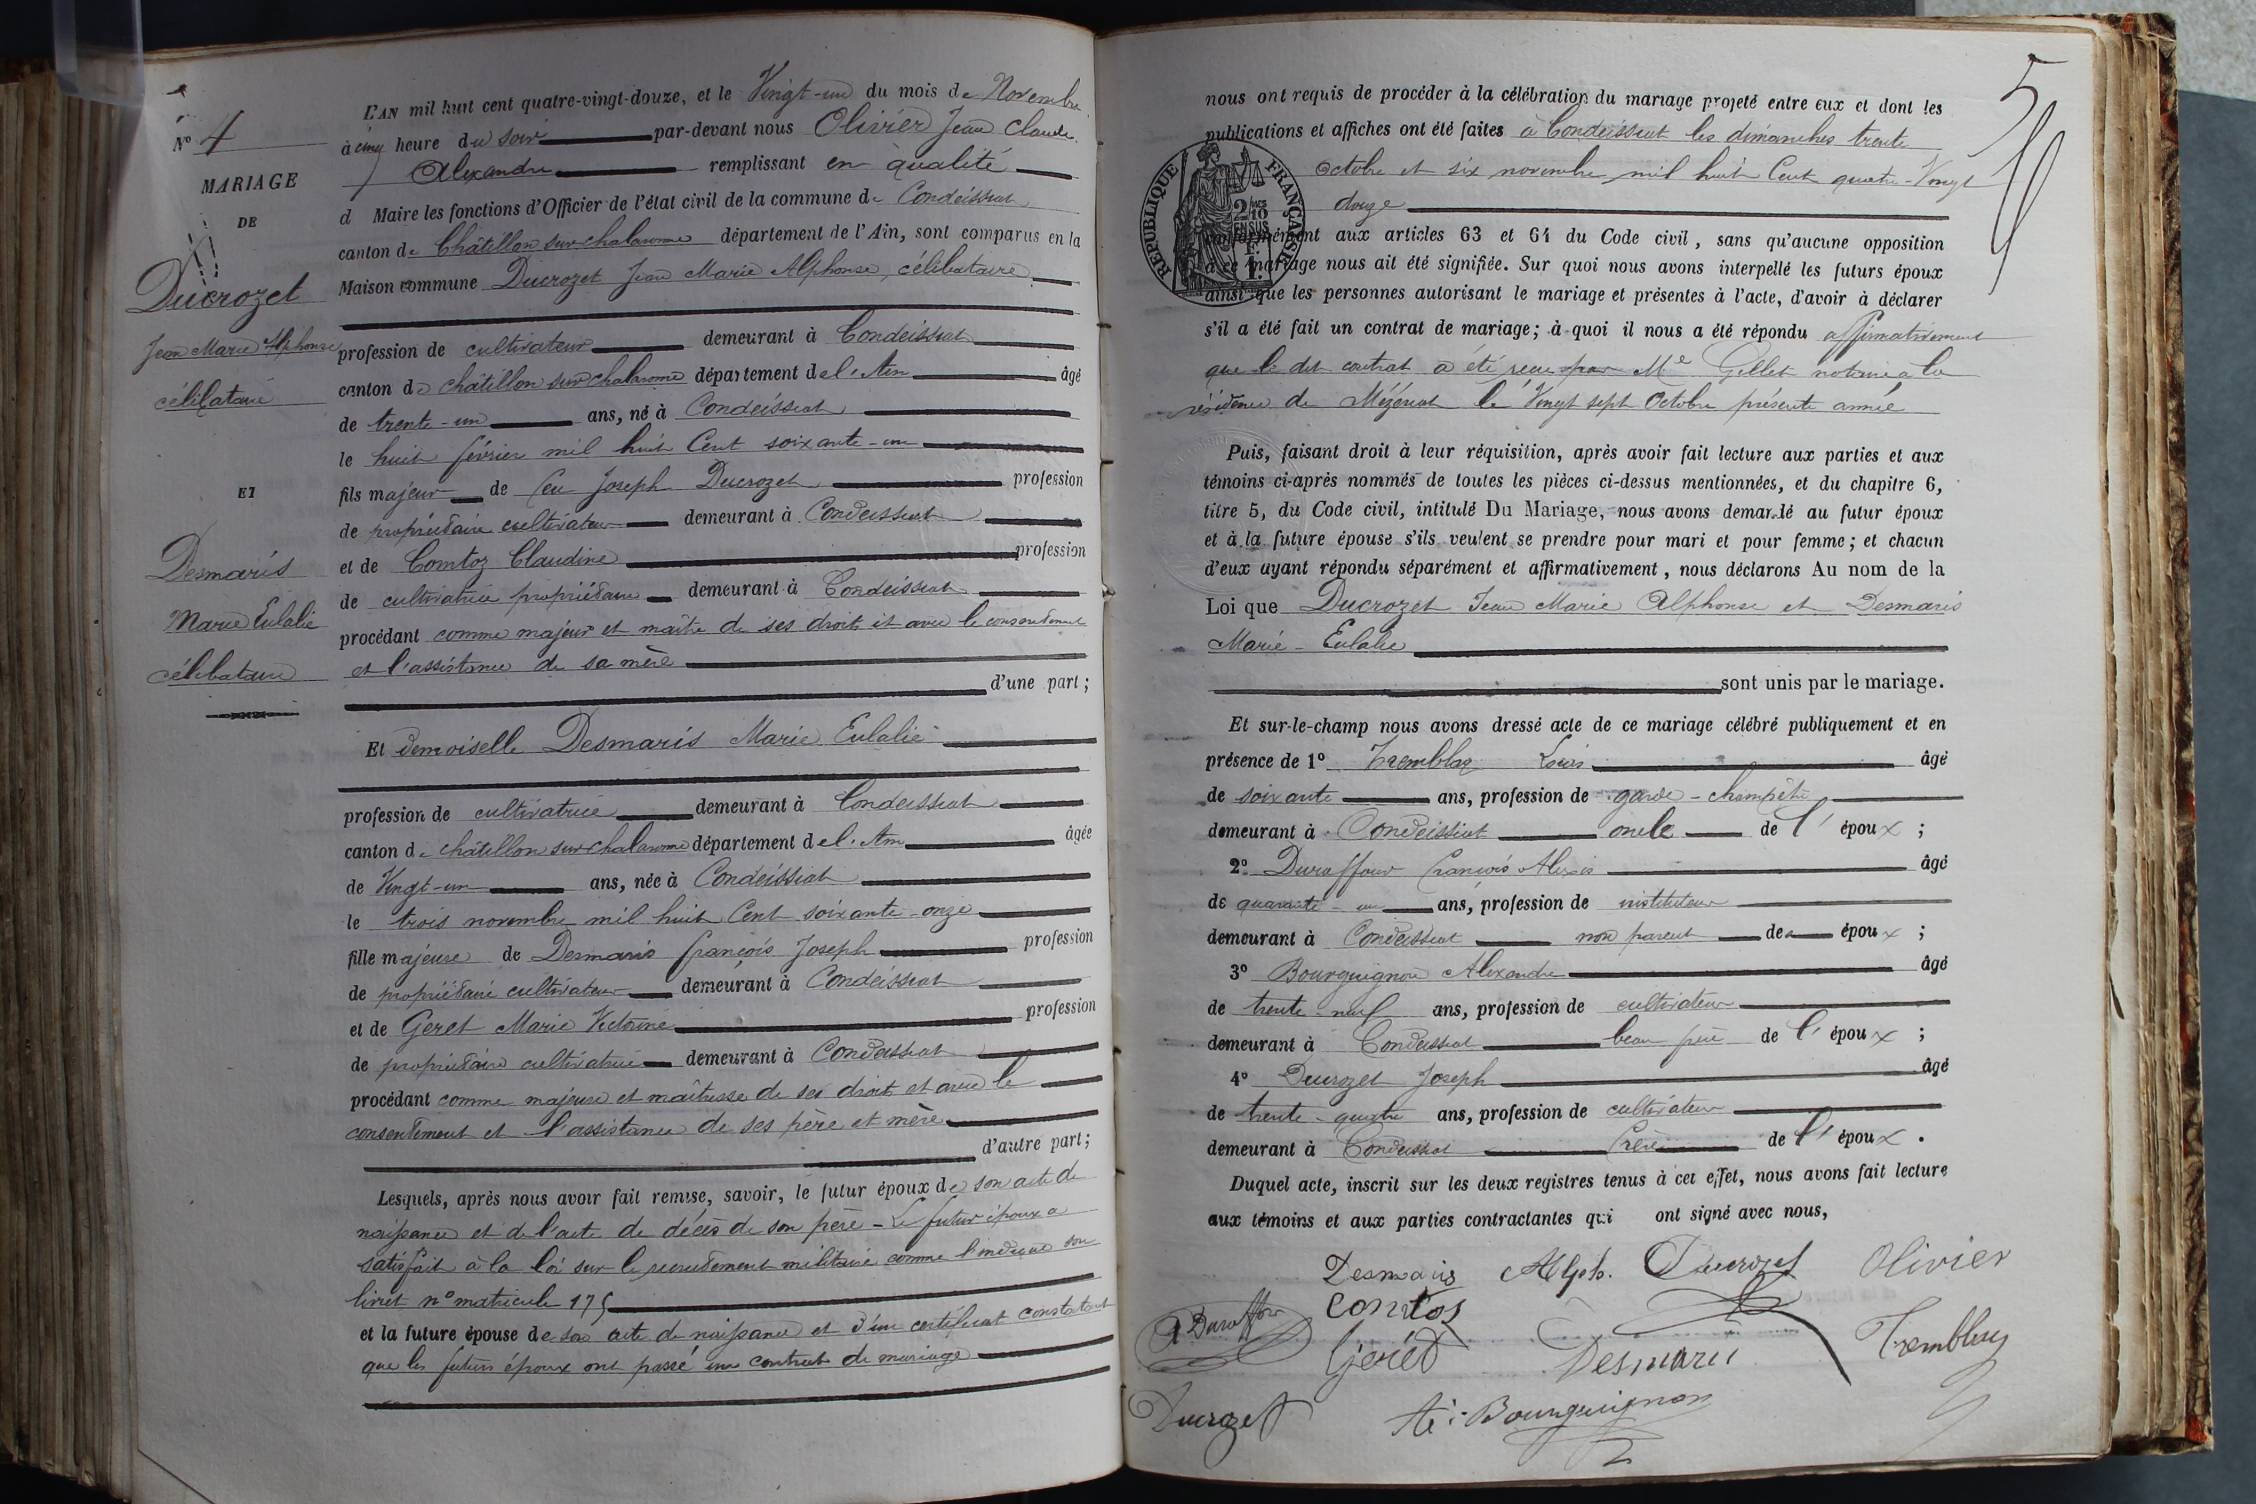 L'AN mil huit cent quatre-vingt-douze, et le Vingt-un du mois de Novembre
à cinq heure du soir par-devant nous Olivier Jean Claude
Alexandre remplissant en qualité
d Maire les fonctions d'Officier de l'état civil de la commune de Condeissiat
canton de Châtillon sur chalaronne département de l'Ain, sont comparus en la
Maison commune Ducrozet Jean Marie Alphonse, célibataire
profession de cultivateur demeurant à Condeissiat
canton de châtillon sur chalaronne département de l'Ain âgé
de trente-un ans, né à Condeissiat
le huit février mil huit Cent soixante-un
fils majeur de feu Joseph Ducrozet profession
de propriétaire cultivateur demeurant à Condeissiat
et de Comtoz Claudine profession
de cultivatrice propriétaire demeurant à Condeissiat
procédant comme majeur et maître de ses droits et avec le consentement
et l'assistance de sa mère
d'une part;
Et demoiselle Desmaris Marie Eulalie
profession de cultivatrice demeurant à Condeissiat
canton de châtillon sur chalaronne département de l'Ain âgée
de Vingt-un ans, née à Condeissiat
le trois novembre mil huit Cent soixante-onze
fille majeure de Desmaris françois Joseph profession
de propriétaire cultivateur demeurant à Condeissiat
et de Geret Marie Victorine profession
de propriétaire cultivatrice demeurant à Condeissiat
procédant comme majeure et maîtresse de ses droits et avec le
consentement et l'assistance de ses père et mère
d'autre part;
Lesquels, après nous avoir fait remise, savoir, le futur époux de son acte de
naissance et de l'acte de décès de son père - Le futur époux a
satisfait à la loi sur le recrutement militaire comme l'indique son
livret n° matricule 175
et la future épouse de son acte de naissance et d'un certificat constatant
que les futurs époux ont passé un contrat de mariage
N° 4
MARIAGE
DE
Ducrozet
Jean Marie Alphonse
célibataire
ET
Desmaris
Marie Eulalie
célibataire
5
nous ont requis de procéder à la célébration du mariage projeté entre eux et dont les
publications et affiches ont été faites à Condeissiat les dimanches trente
Octobre et six novembre mil huit Cent quatre-Vingt
douze
conformément aux articles 63 et 64 du Code civil, sans qu'aucune opposition
à ce mariage nous ait été signifiée. Sur quoi nous avons interpellé les futurs époux
ainsi que les personnes autorisant le mariage et présentes à l'acte, d'avoir à déclarer
s'il a été fait un contrat de mariage; à quoi il nous a été répondu affirmativement
que le dit contrat a été reçu par Me Gillet notaire à la
résidence de Mézériat le Vingt sept Octobre présente année
RÉPUBLIQUE FRANÇAISE
2/10 EN SUS
1 F.
Puis, faisant droit à leur réquisition, après avoir fait lecture aux parties et aux
témoins ci-après nommés de toutes les pièces ci-dessus mentionnées, et du chapitre 6,
titre 5, du Code civil, intitulé Du Mariage, nous avons demandé au futur époux
et à la future épouse s'ils veulent se prendre pour mari et pour femme; et chacun
d'eux ayant répondu séparément et affirmativement, nous déclarons Au nom de la
Loi que Ducrozet Jean Marie Alphonse et Desmaris
Marie-Eulalie
sont unis par le mariage.
Et sur-le-champ nous avons dressé acte de ce mariage célébré publiquement et en
présence de 1° Tremblay Louis âgé
de soixante ans, profession de garde-champêtre
demeurant à Condeissiat oncle de l'époux;
2° Duraffour François Alexis âgé
de quarante-un ans, profession de instituteur
demeurant à Condeissiat non parent des époux;
3° Bourguignon Alexandre âgé
de trente-neuf ans, profession de cultivateur
demeurant à Condeissiat beau frère de l'époux;
4° Ducrozet Joseph âgé
de trente-quatre ans, profession de cultivateur
demeurant à Condeissiat frère de l'époux.
Duquel acte, inscrit sur les deux registres tenus à cet effet, nous avons fait lecture
aux témoins et aux parties contractantes qui ont signé avec nous,
Desmaris Alph. Ducrozet Olivier
A Duraffour Comtos
Geret Desmaris Tremblay
Ducrozet Al: Bourguignon